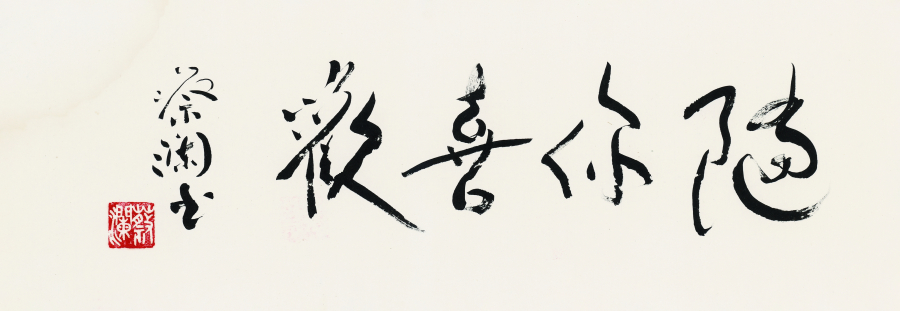 隨你喜歡
蔡瀾書
蔡瀾